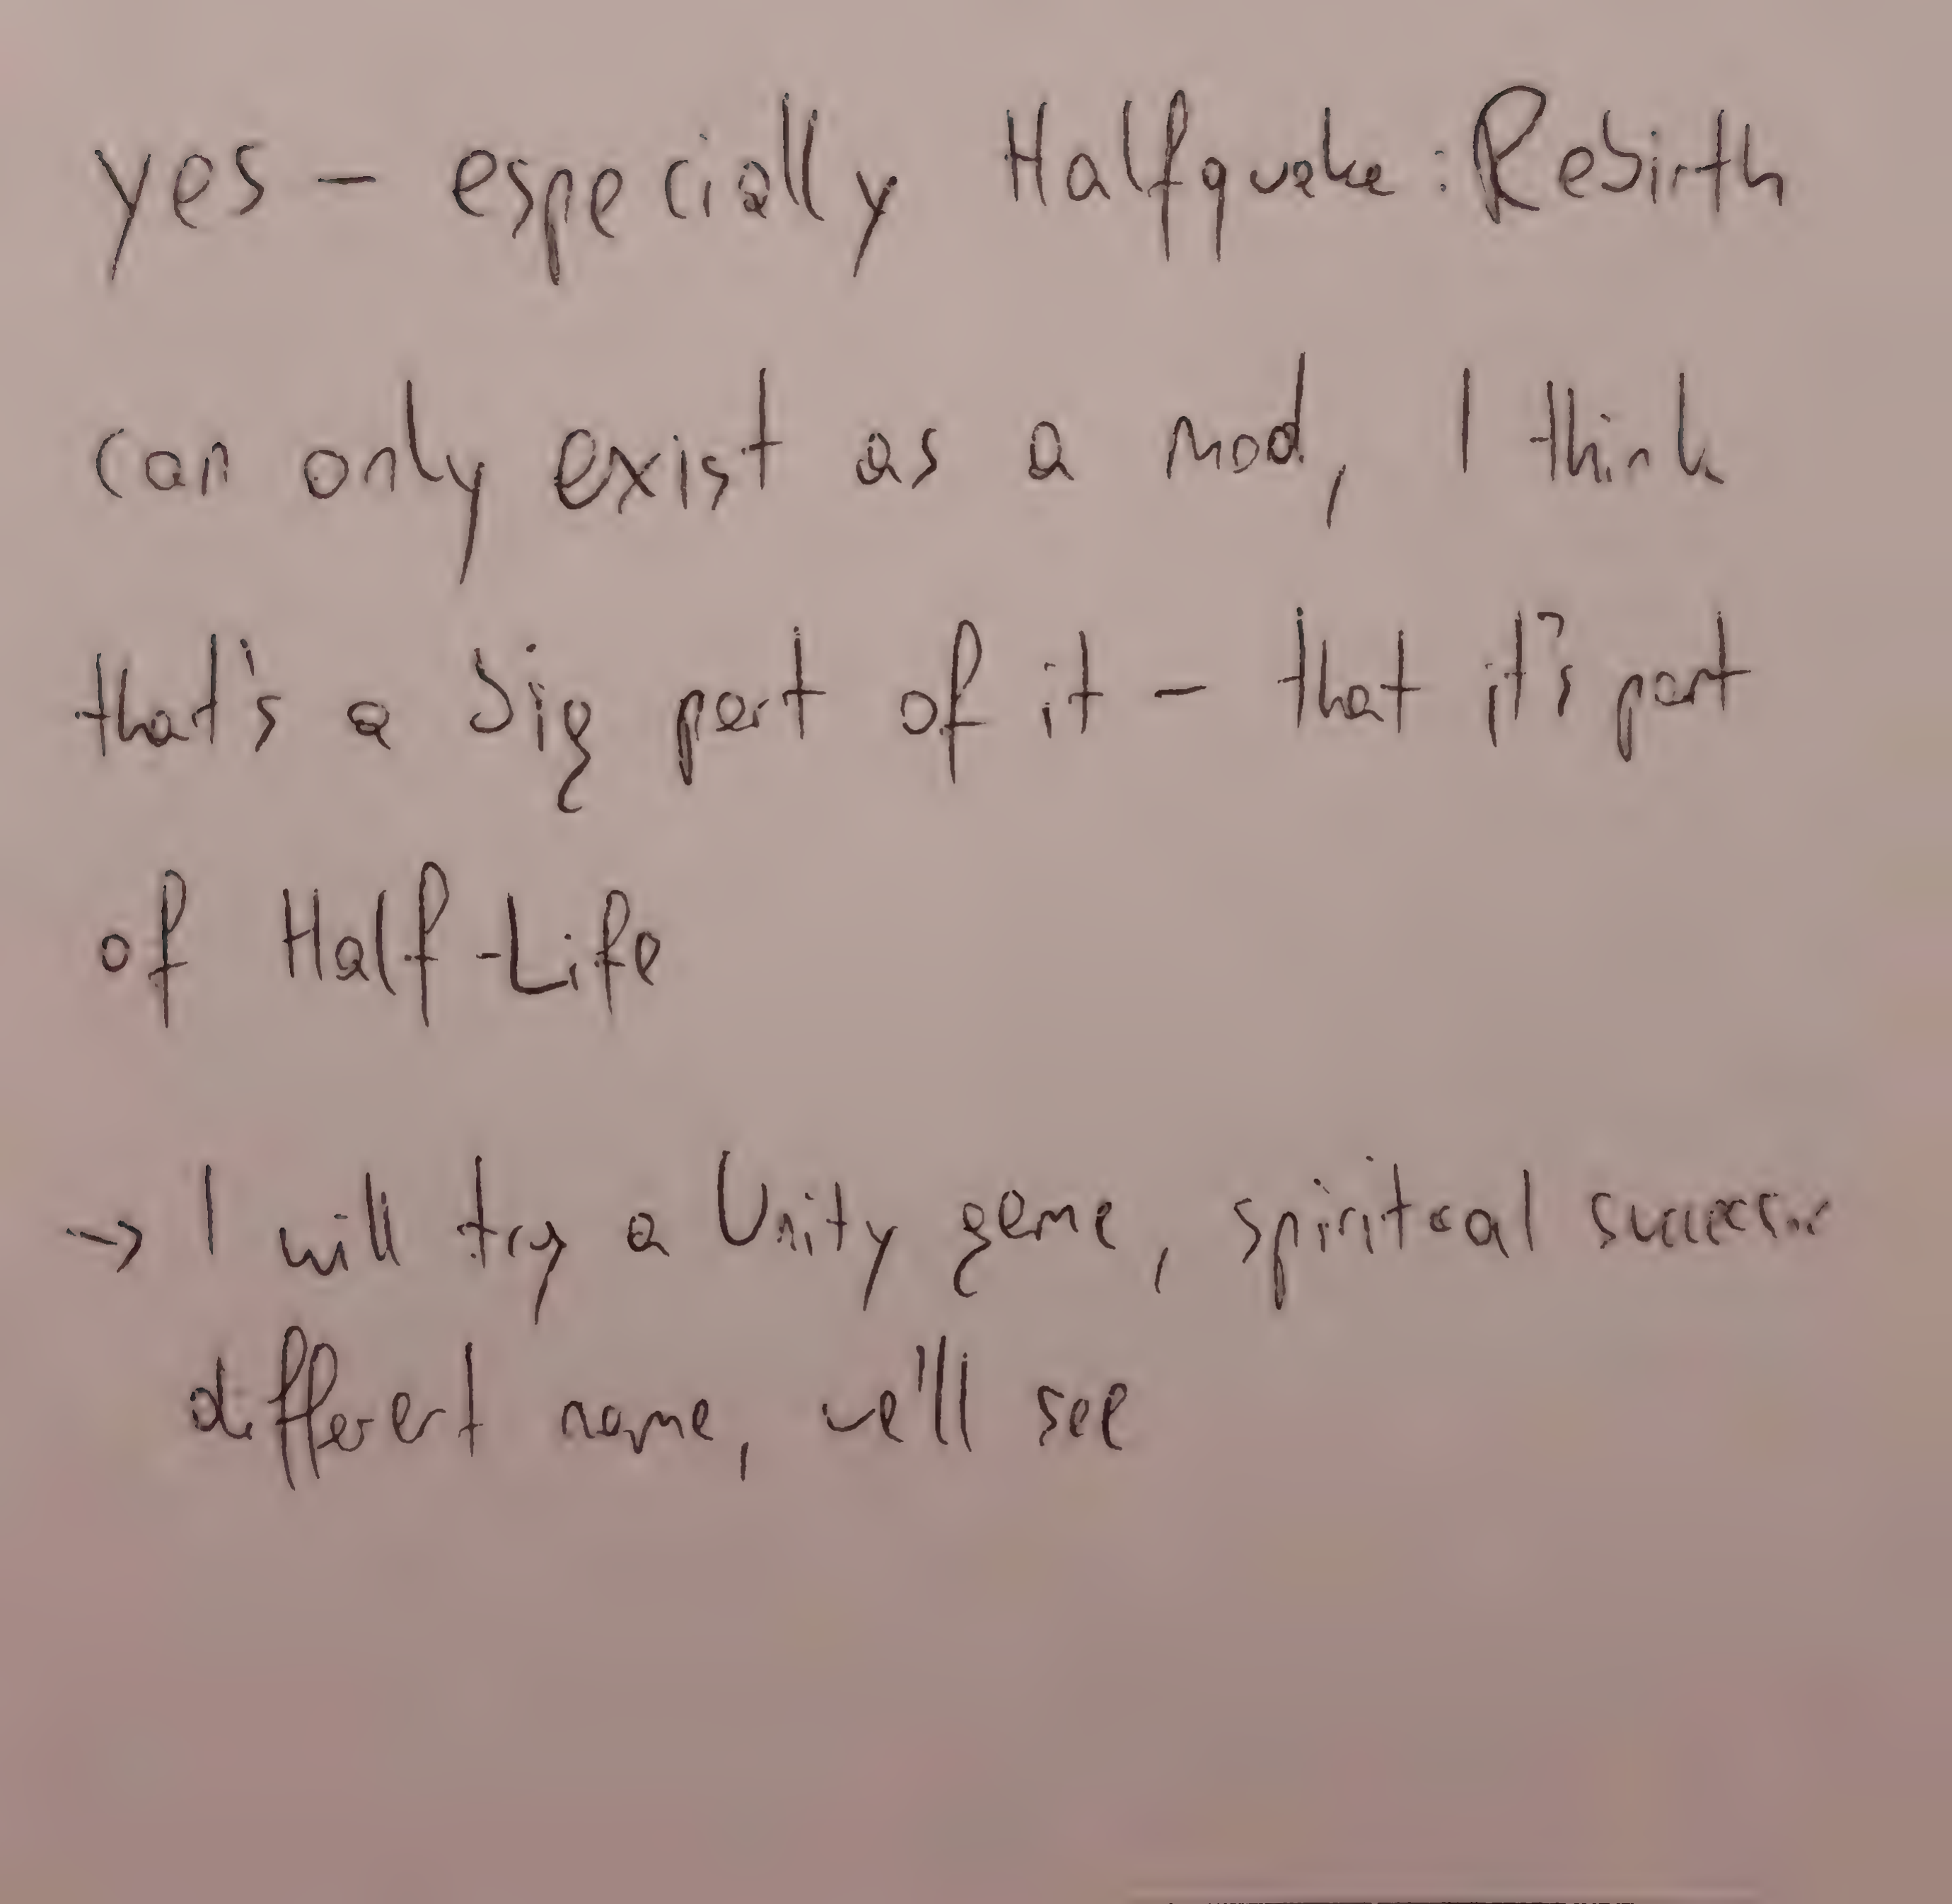 yes – especially Halfquake: Rebirth
can only exist as a mod, I think
that's a big part of it – that it's part
of Half-Life
→ I will try a Unity game, spiritual successor
different name, we'll see